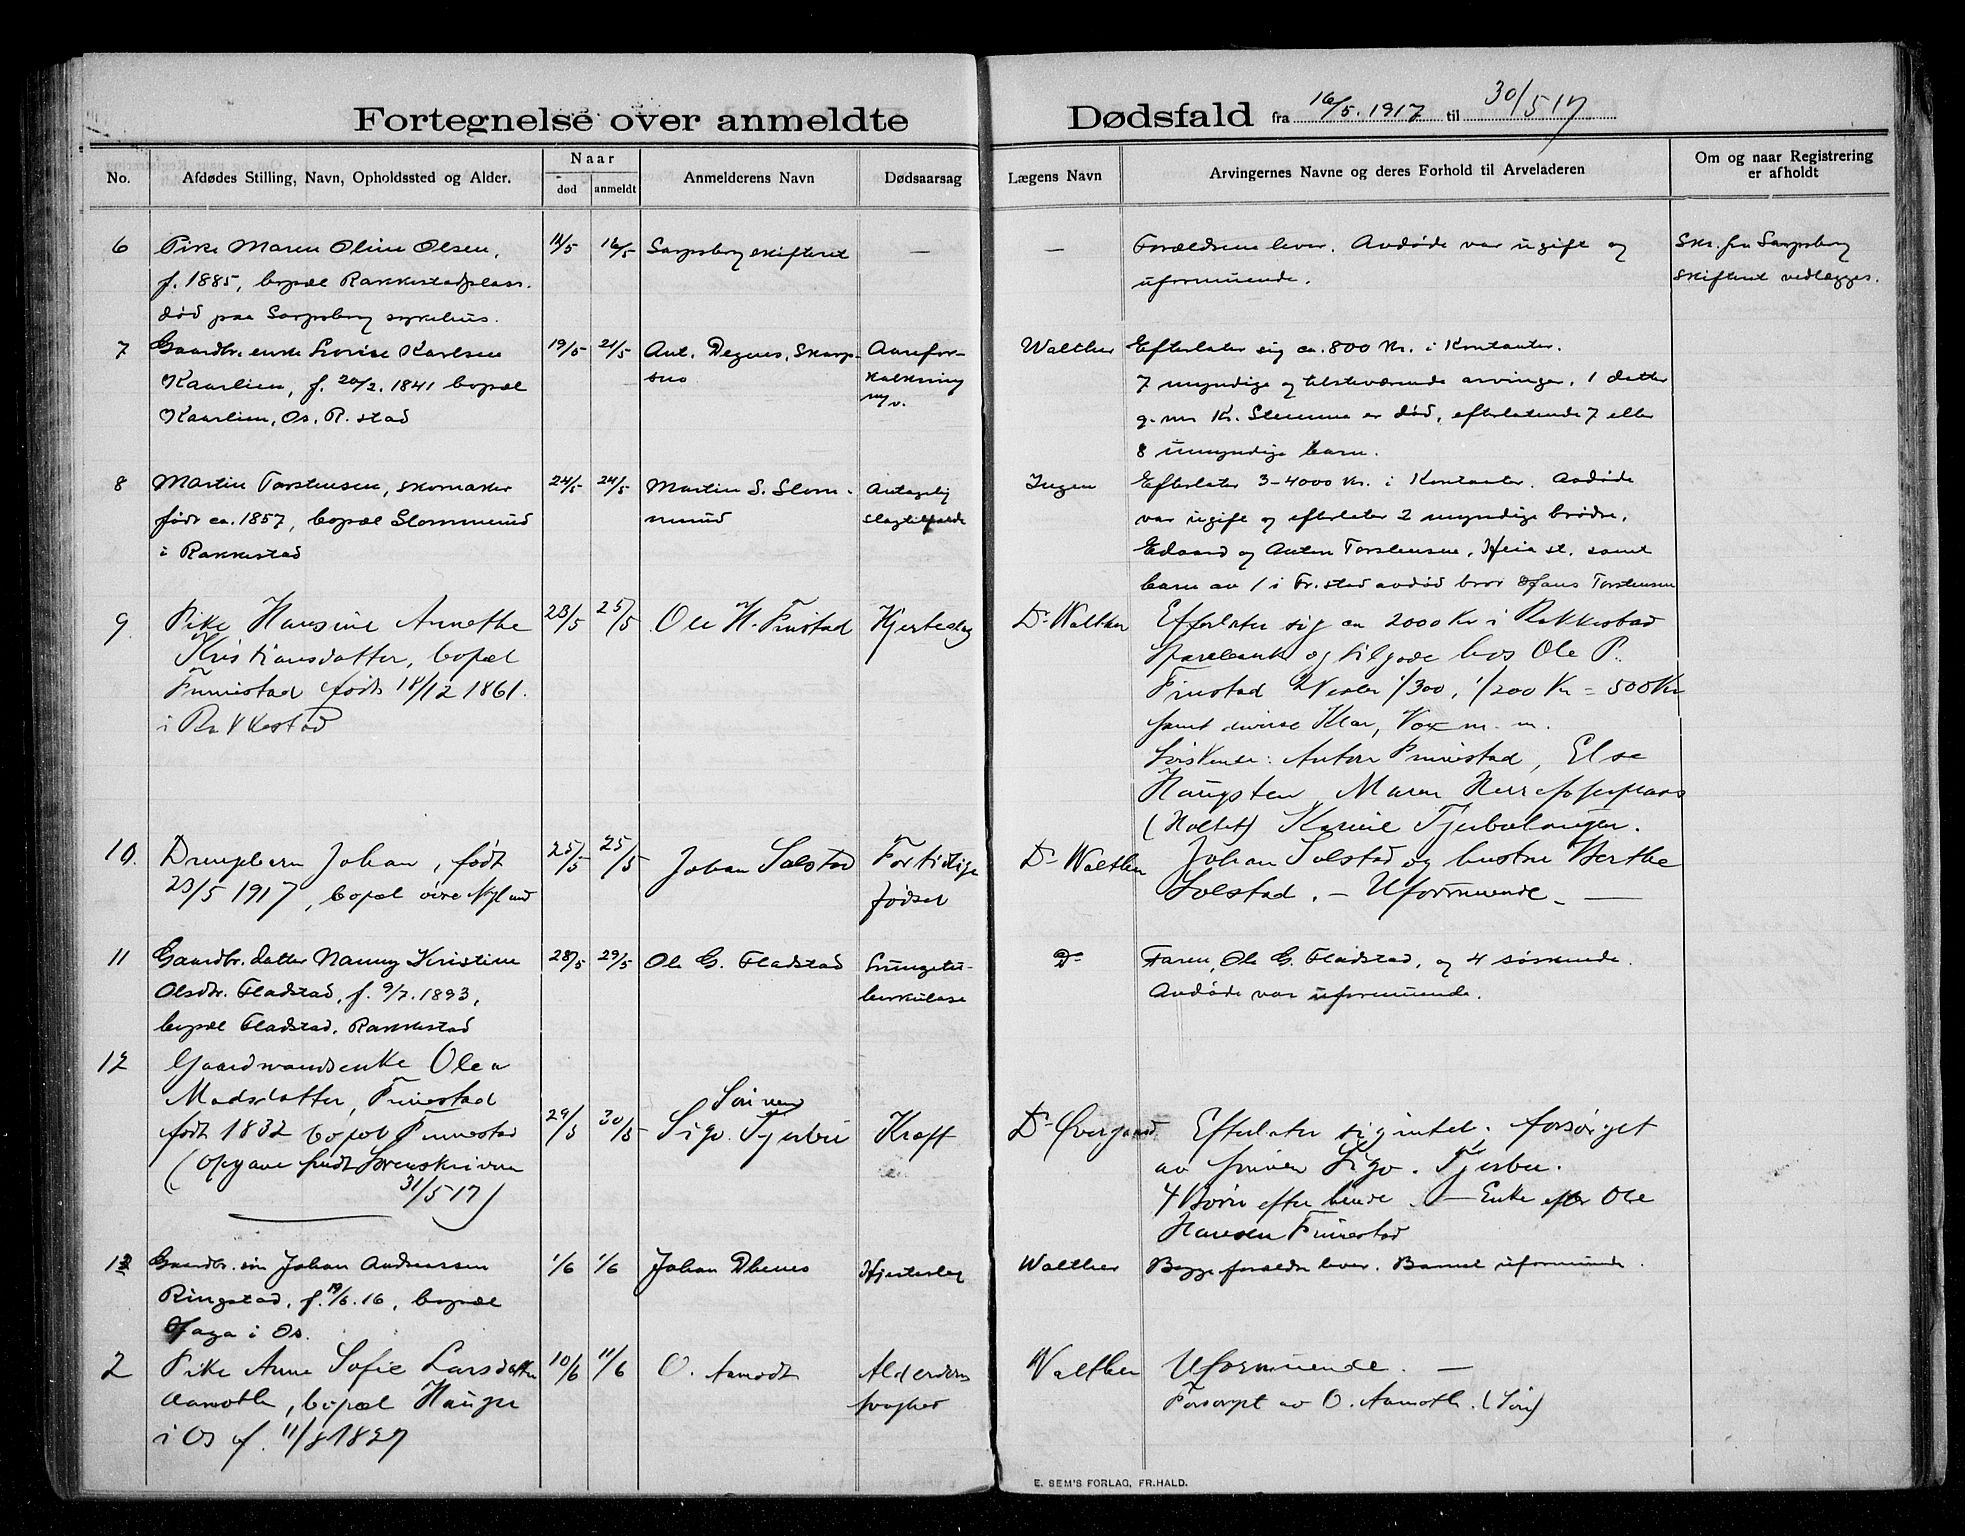 Fortegnelse over anmeldte Dødsfald fra 16/5. 1917 til 30/5 17
No.
Afdødes Stilling, Navn, Opholdssted og Alder.
Naar
død
anmeldt
Anmelderens Navn
Dødsaarsag
Lægens Navn
Arvingernes Navne og deres Forhold til Arveladeren
Om og naar Registrering
er afholdt
6
Pike Maren Oline Olsen,
f. 1885, bopæl Rakkestadplass.
død paa Sarpsborg sykehus.
14/5
16/5
Sarpsborg skifteret
—
—
Forældrene lever. Avdøde var ugift og
uformuende.
Skr. fra Sarpsborg
skifteret vedlægges.
7
Gaardbr. enke Lovise Karlsen
Kaarlien, f. 20/2. 1841 bopæl
Kaarlien, Os, R.stad
19/5
21/5
Ant. Degnes, Skarps-
no
Aarefor-
kalkning
m.v.
Walther
Efterlater sig ca. 800 kr. i kontanter.
7 myndige og tilsteværende arvinger. 1 datter
g. m. K. Stemme er død, efterlatende 7 eller
8 umyndige barn.
8
Martin Torstensen, skomaker
født ca. 1857, bopæl Slommund
i Rakkestad
24/5
24/5
Martin S. Slom-
mund
Antagelig
slagtilfælde
Ingen
Efterlater 3-4000 kr. i kontanter. Avdøde
var ugift og efterlater 2 myndige brødre,
Edvard og Anton Torstensen, Heia st. samt
barn av 1 i Fr.stad avdød bror Hans Torstensen
9.
Pike Hansine Annethe
Kristiansdatter, bopæl
Finnestad født 18/12 1861.
i Rakkestad
23/5
25/5
Ole H. Finstad
Hjerteslag
Dr Walther
Efterlater sig ca 2000 Kr i Rakkestad
Sparebank og tilgode hos Ole P.
Finstad Vexler 1/300, 1/200 Kr = 500 Kr
samt diverse Klær, Vox m. m.
Søskende: Anton Finnestad, Else
Haugsten, Maren
(Holtet) Karine
10.
Drengebarn Johan, født
23/5 1917, bopæl øvre Nyland
25/5
25/5
Johan Solstad
Fortidlig
fødsel
Dr Walther
Johan Solstad og hustru Berthe
Solstad. — Uformuende. —
11
Gaardbr. datter Nanny Kristine
Olsdtr. Fladstad, f. 9/7. 1893,
bopæl Fladstad, Rakkestad
28/5
29/5
Ole G. Fladstad
Lungetu-
berkulose
Do
Faren, Ole G. Fladstad, og 4 søskende.
Avdøde var uformuende.
12
Gaardmandsenke Olea
Madsdatter, Finnestad
født 1832 bopæl Finnestad
(opgave sendt Sorenskriveren
31/5 17)
29/5
30/5
Svigersøn
Tjerbu
Kræft
Dr Overgaard
Efterlater sig intet. forsørget
av Tjerbu.
4 Børn efter hende. — Enke efter Ole
Hansen Finnestad
13
Gaardbr. søn Johan Andreassen
Ringstad, f. 19/6. 16, bopæl
Haga i Os.
1/6
1/6
Johan Dhenes
Hjerteslag
Walther
Begge forældre lever. Barnet uformuende.
2
Pike Anne Sofie Larsdatter
Aamoth, bopæl Hauger
i Os f. 11/8 1827
10/6
11/6
O. Aamodt
Alderdoms
svaghet
Walther
Uformuende. —
Forsørget av O. Aamoth. (Søn)
E. SEM'S FORLAG, FR.HALD.